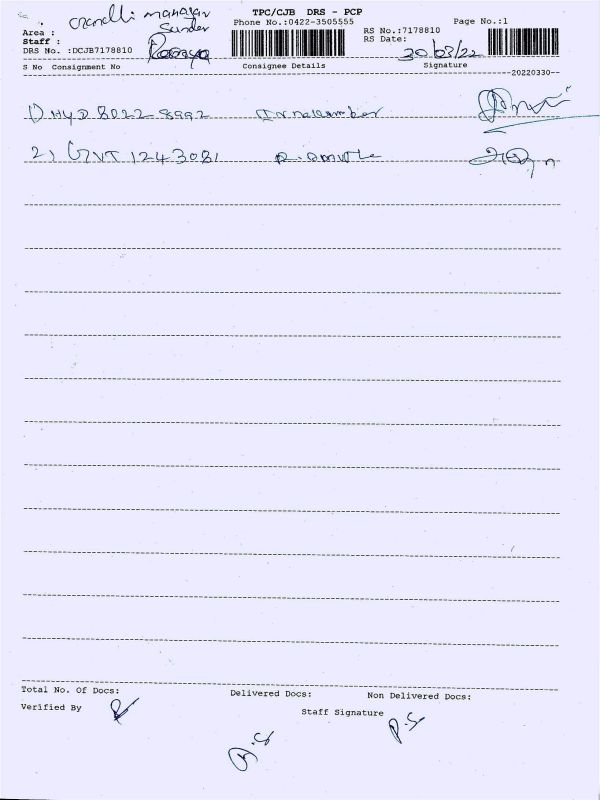 TPC/CJB DRS - PCP
Phone No.:0422-3505555
Page No.:1
Area :
Staff :
Sunder
DRS No. :DCJB7178810
RS No.:7178810
RS Date:
30/03/22
S No Consignment No Consignee Details Signature
--20220330--
1) HYD 8022 8992
2) GVT 1243081
Total No. Of Docs: Delivered Docs: Non Delivered Docs:
Verified By Staff Signature
P.S